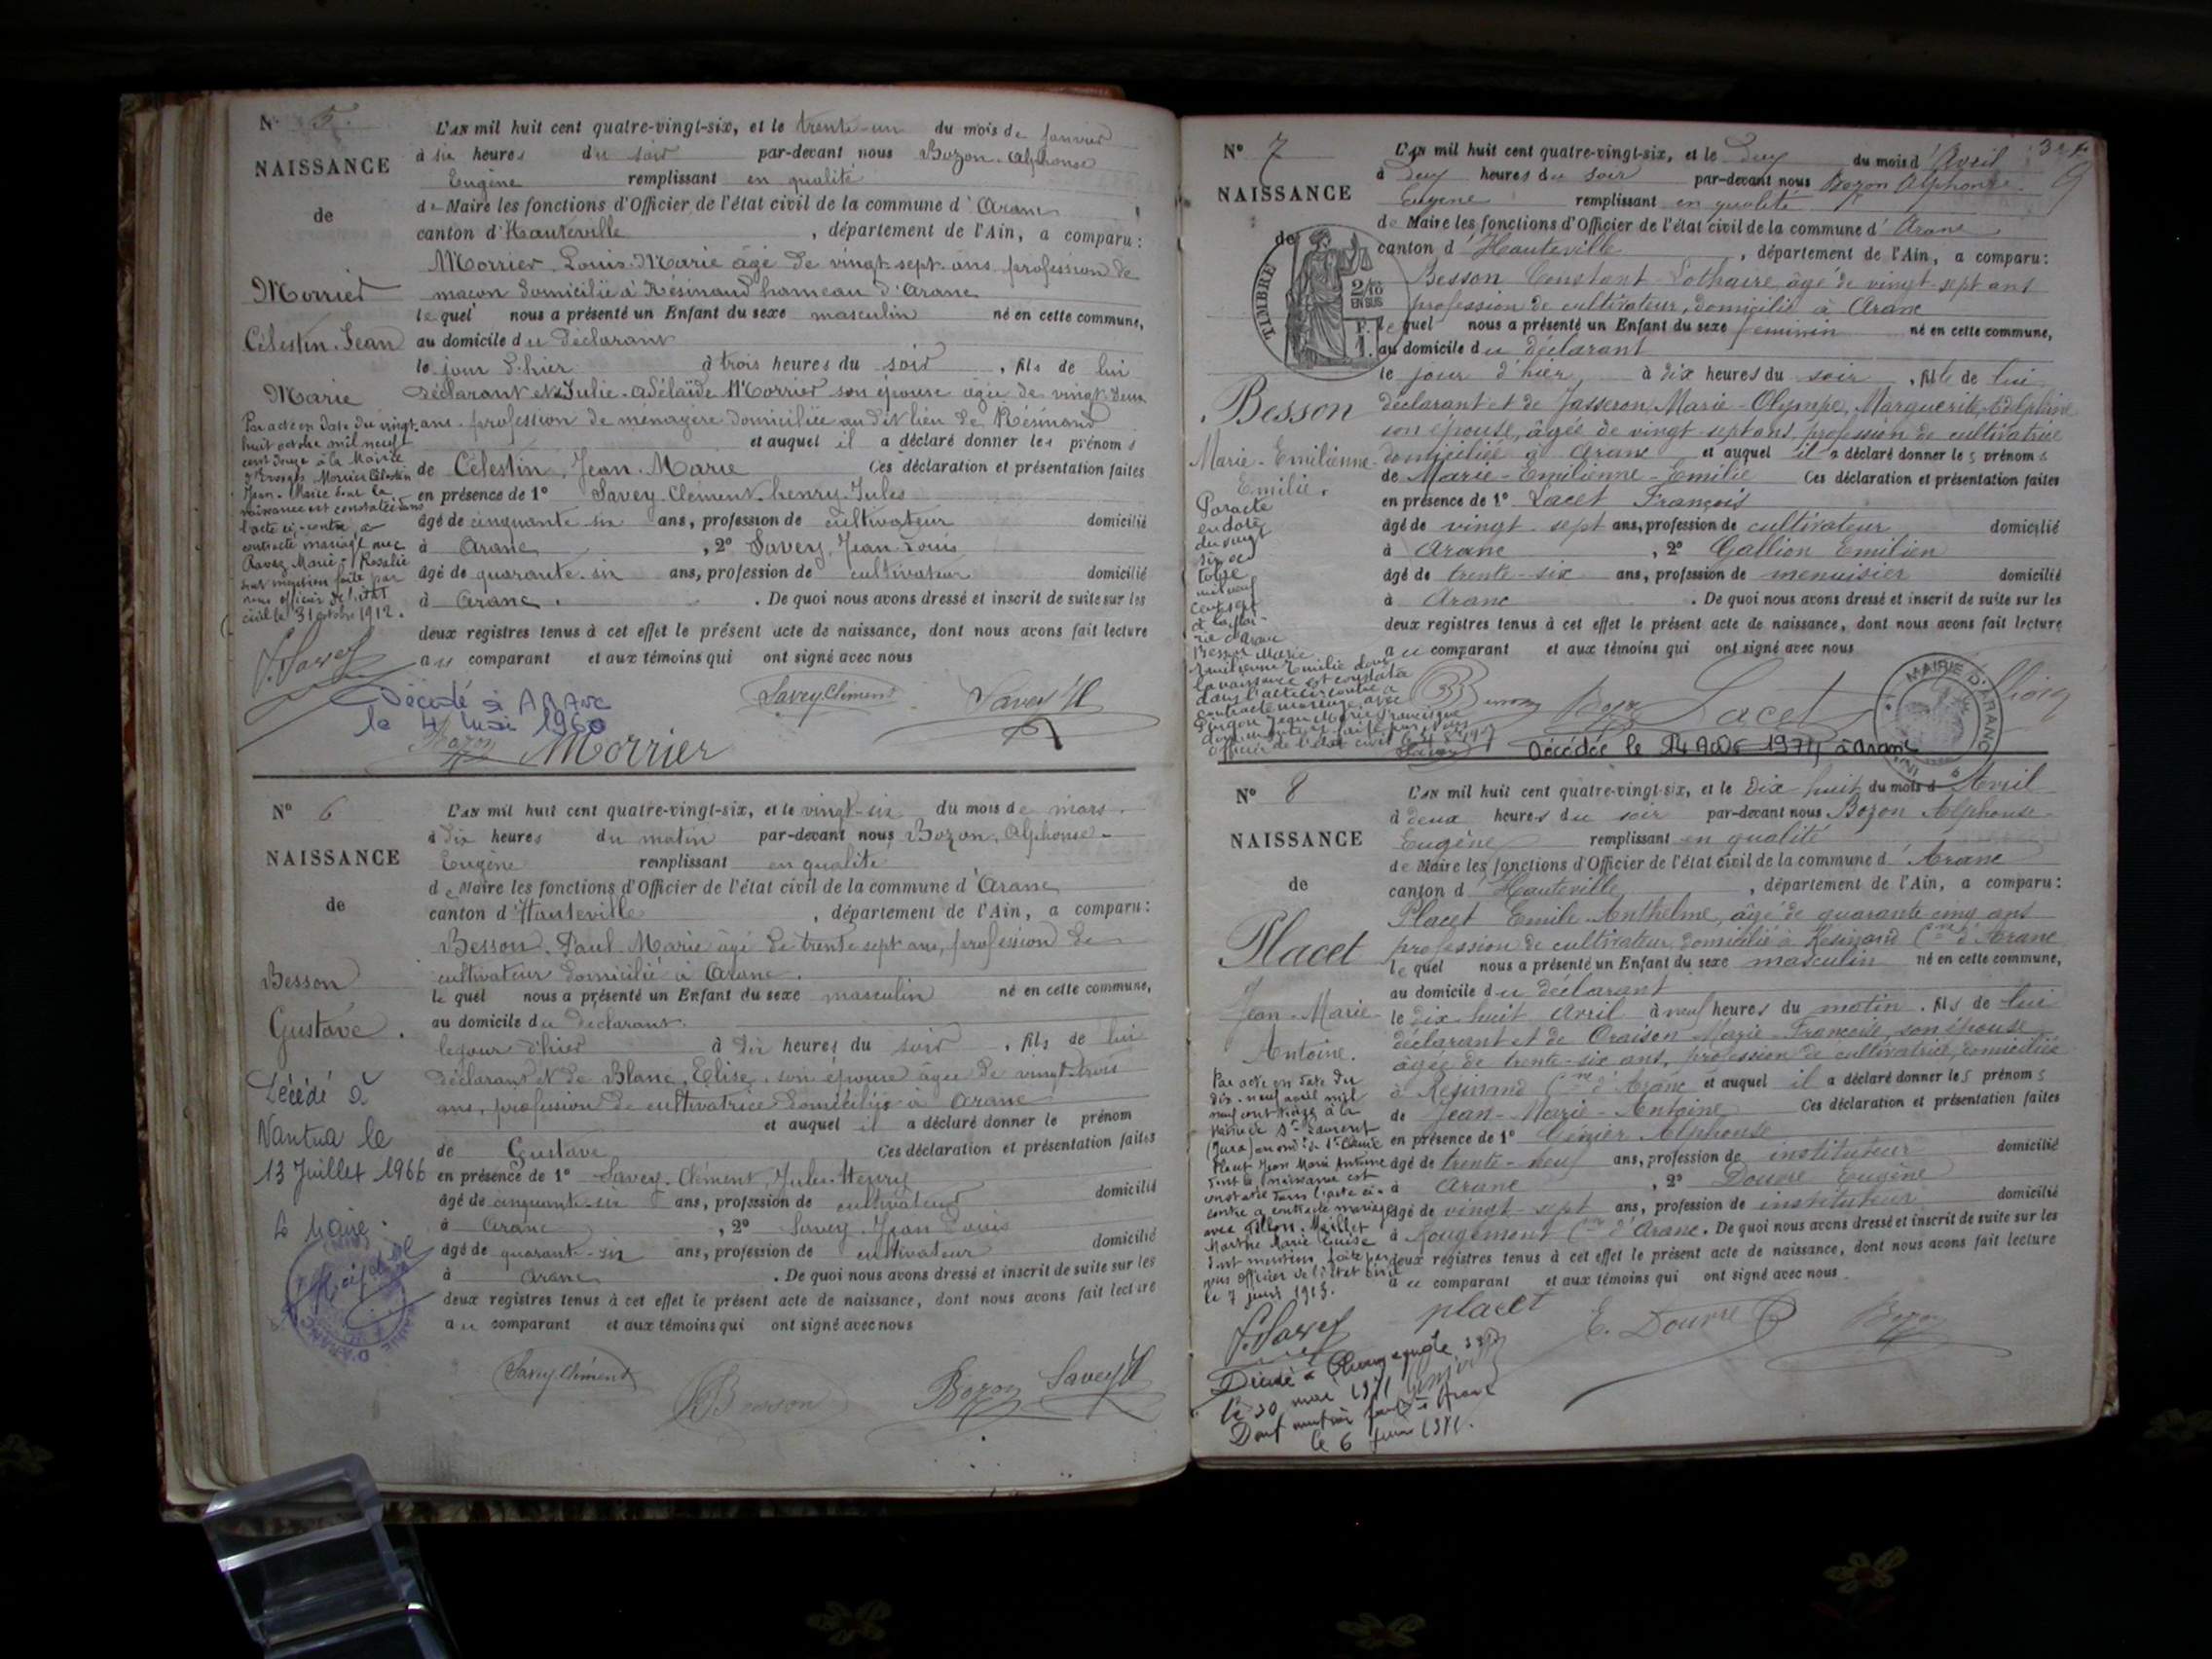 N° 5.
NAISSANCE
de
Morrier
Célestin Jean
Marie
Par acte en date du vingt
huit octobre mil neuf
cent douze à la Mairie
Morrier Célestin
Jean-Marie dont la
naissance est constatée dans
l'acte ci-contre a
contracté mariage avec
Ravez Marie-Rosalie
dont mention faite par
nous officier de l'état
civil le 31 octobre 1912.
L'AN mil huit cent quatre-vingt-six, et le trente-un du mois de Janvier
à six heures du soir par-devant nous Bozon Alphonse
Eugène remplissant en qualité
de Maire les fonctions d'Officier de l'état civil de la commune d'Aranc
canton d'Hauteville, département de l'Ain, a comparu:
Morrier Louis-Marie âgé de vingt-sept ans profession de
maçon domicilié à Résinand hameau d'Aranc
lequel nous a présenté un Enfant du sexe masculin né en cette commune,
au domicile du déclarant
le jour d'hier à trois heures du soir, fils de lui
déclarant et Julie-Adélaïde Morrier son épouse âgée de vingt-deux
ans profession de ménagère domiciliée au dit lieu de Résinand
et auquel il a déclaré donner les prénoms
de Célestin, Jean-Marie Ces déclaration et présentation faites
en présence de 1° Savey Clément-henry-Jules
âgé de cinquante-six ans, profession de cultivateur domicilié
à Aranc, 2° Savey, Jean-Louis
âgé de quarante-six ans, profession de cultivateur domicilié
à Aranc. De quoi nous avons dressé et inscrit de suite sur les
deux registres tenus à cet effet le présent acte de naissance, dont nous avons fait lecture
au comparant et aux témoins qui ont signé avec nous
J. Savey
Savey Clément
Savey Jl
Décédé à ARANC
le 4 mai 1960
Bozon
Morrier
N° 6
NAISSANCE
de
Besson
Gustave.
Décédé à
Nantua le
13 Juillet 1966
Le Maire.
L'AN mil huit cent quatre-vingt-six, et le vingt-six du mois de mars
à dix heures du matin par-devant nous Bozon, Alphonse-
Eugène remplissant en qualité
de Maire les fonctions d'Officier de l'état civil de la commune d'Aranc
canton d'Hauteville, département de l'Ain, a comparu:
Besson Paul-Marie âgé de trente sept ans, profession de
cultivateur domicilié à Aranc.
lequel nous a présenté un Enfant du sexe masculin né en cette commune,
au domicile du déclarant
le jour d'hier à dix heures du soir, fils de lui
déclarant et de Blanc, Elise, son épouse âgée de vingt-trois
ans, profession de cultivatrice domiciliée à Aranc
et auquel il a déclaré donner le prénom
de Gustave Ces déclaration et présentation faites
en présence de 1° Savey, Clément, Jules-Henry
âgé de cinquante-six ans, profession de cultivateur domicilié
à Aranc, 2° Savey Jean Louis
âgé de quarante-six ans, profession de cultivateur domicilié
à Aranc. De quoi nous avons dressé et inscrit de suite sur les
deux registres tenus à cet effet le présent acte de naissance, dont nous avons fait lecture
au comparant et aux témoins qui ont signé avec nous
Savey Clément
Besson
Bozon
Savey Jl
N° 7
NAISSANCE
de
TIMBRE
2/10
EN SUS
Besson
Marie-Emilienne-
Emilie.
Par acte
en date
du vingt
six oc
tobre
mil neuf
cent sept
à la mai-
rie d'Aranc
Besson Marie
Emilienne Emilie dont
la naissance est constatée
dans l'acte ci-contre a
contracté mariage avec
Jean Marie Francisque
dont mention faite par nous
officier de l'état civil
L'AN mil huit cent quatre-vingt-six, et le Deux du mois d'Avril
à Deux heures du soir par-devant nous Bozon Alphonse
Eugène remplissant en qualité
de Maire les fonctions d'Officier de l'état civil de la commune d'Aranc
canton d'Hauteville, département de l'Ain, a comparu:
Besson Constant Lothaire, âgé de vingt-sept ans
profession de cultivateur, domicilié à Aranc
lequel nous a présenté un Enfant du sexe féminin né en cette commune,
au domicile du déclarant
le jour d'hier, à dix heures du soir, fille de lui
déclarant et de Jasseron, Marie-Olympe, Marguerite, Delphine
son épouse, âgée de vingt-sept ans, profession de cultivatrice
domiciliée à Aranc et auquel il a déclaré donner les prénoms
de Marie-Emilienne-Emilie Ces déclaration et présentation faites
en présence de 1° Lacet François
âgé de vingt-sept ans, profession de cultivateur domicilié
à Aranc, 2° Gallion Emilien
âgé de trente-six ans, profession de menuisier domicilié
à Aranc. De quoi nous avons dressé et inscrit de suite sur les
deux registres tenus à cet effet le présent acte de naissance, dont nous avons fait lecture
au comparant et aux témoins qui ont signé avec nous
Besson
Bozon
Lacet
MAIRIE D'ARANC
Décédée le à Aranc
N° 8
NAISSANCE
de
Placet
Jean-Marie-
Antoine.
Par acte en date du
dix-neuf avril mil
neuf cent treize à la
Mairie de St-Laurent
(Jura)
Placet Jean Marie Antoine
dont la naissance est
constatée dans l'acte ci-
contre a contracté mariage
avec
Marthe Marie Louise
dont mention faite par
nous officier de l'état civil
le 7 juin 1913.
L'AN mil huit cent quatre-vingt-six, et le Dix-huit du mois d'Avril
à deux heures du soir par-devant nous Bozon Alphonse
Eugène remplissant en qualité
de Maire les fonctions d'Officier de l'état civil de la commune d'Aranc
canton d'Hauteville, département de l'Ain, a comparu:
Placet Emile-Anthelme, âgé de quarante cinq ans
profession de cultivateur, domicilié à Résinand Cne d'Aranc
lequel nous a présenté un Enfant du sexe masculin né en cette commune,
au domicile du déclarant
le dix-huit Avril à neuf heures du matin, fils de lui
déclarant et de Oraison Marie-Françoise, son épouse
âgée de trente-six ans, profession de cultivatrice, domiciliée
à Résinand Cne d'Aranc et auquel il a déclaré donner les prénoms
de Jean-Marie-Antoine Ces déclaration et présentation faites
en présence de 1° Alphonse
âgé de trente-neuf ans, profession de instituteur domicilié
à Aranc, 2° Douvre Eugène
âgé de vingt-sept ans, profession de instituteur domicilié
à Rougemont Cne d'Aranc. De quoi nous avons dressé et inscrit de suite sur les
deux registres tenus à cet effet le présent acte de naissance, dont nous avons fait lecture
au comparant et aux témoins qui ont signé avec nous
J. Savey
placet
E. Douvre
Bozon
Décédé à
le 30 mai 1971
Dont mention faite à Aranc
le 6 juin 1971.